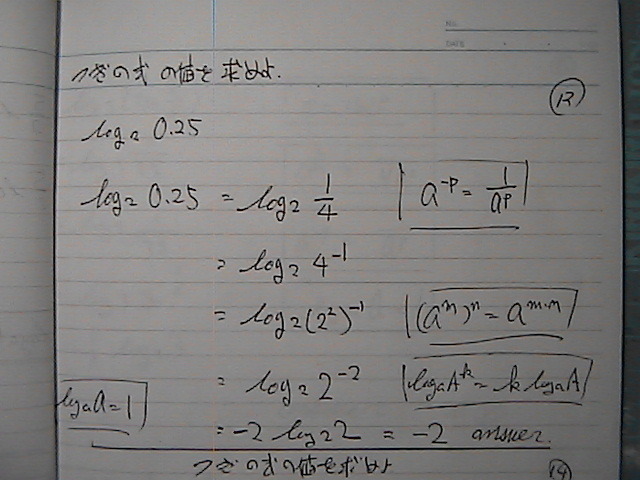 NO.
DATE
つぎの式の値を求めよ.
(13)
log₂ 0.25
log₂ 0.25 = log₂ 1/4 a⁻ᵖ = 1/aᵖ
= log₂ 4⁻¹
= log₂ (2²)⁻¹ (aᵐ)ⁿ = aᵐ·ⁿ
= log₂ 2⁻² logₐAᵏ = k logₐA
logₐa = 1
= -2 log₂ 2 = -2 answer.
つぎの式の値を求めよ
(14)